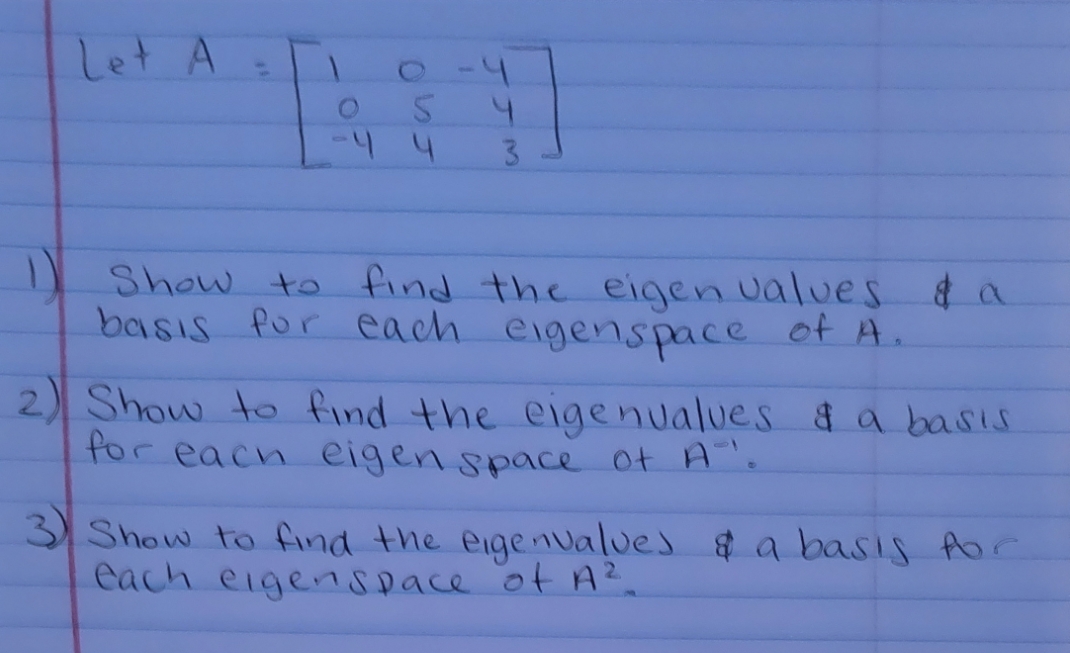 Let A = [ 1 0 -4
0 5 4
-4 4 3 ]
1) Show to find the eigenvalues & a
basis for each eigenspace of A.
2) Show to find the eigenvalues & a basis
for each eigenspace of A⁻¹.
3) Show to find the eigenvalues & a basis for
each eigenspace of A².